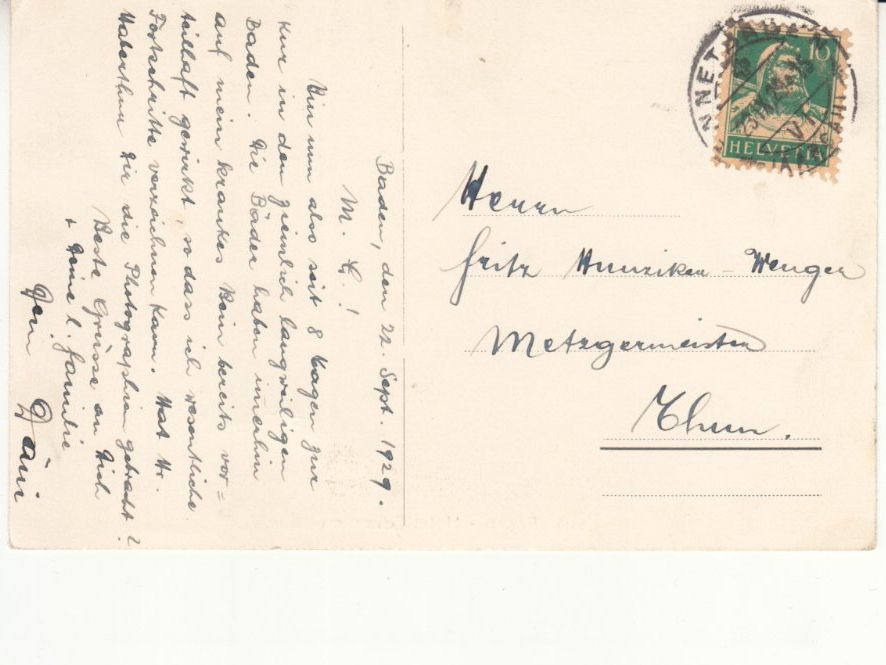 Baden, den 22. Sept. 1929.
M. L.!
Bin nun also seit 8 Tagen zur
Kur in dem ziemlich langweiligen
Baden. Die Bäder haben immerhin
auf mein krankes Bein bereits vor=
teilhaft gewirkt, so dass ich wesentliche
Fortschritte verzeichnen kann. Hat Hr.
Haberthür Dir die Photographien gebracht?
Beste Grüsse an Dich
+ Deine l. Familie
Dein
Herrn
Fritz Hunziker-Wenger
Metzgermeister
Thun.
10
HELVETIA